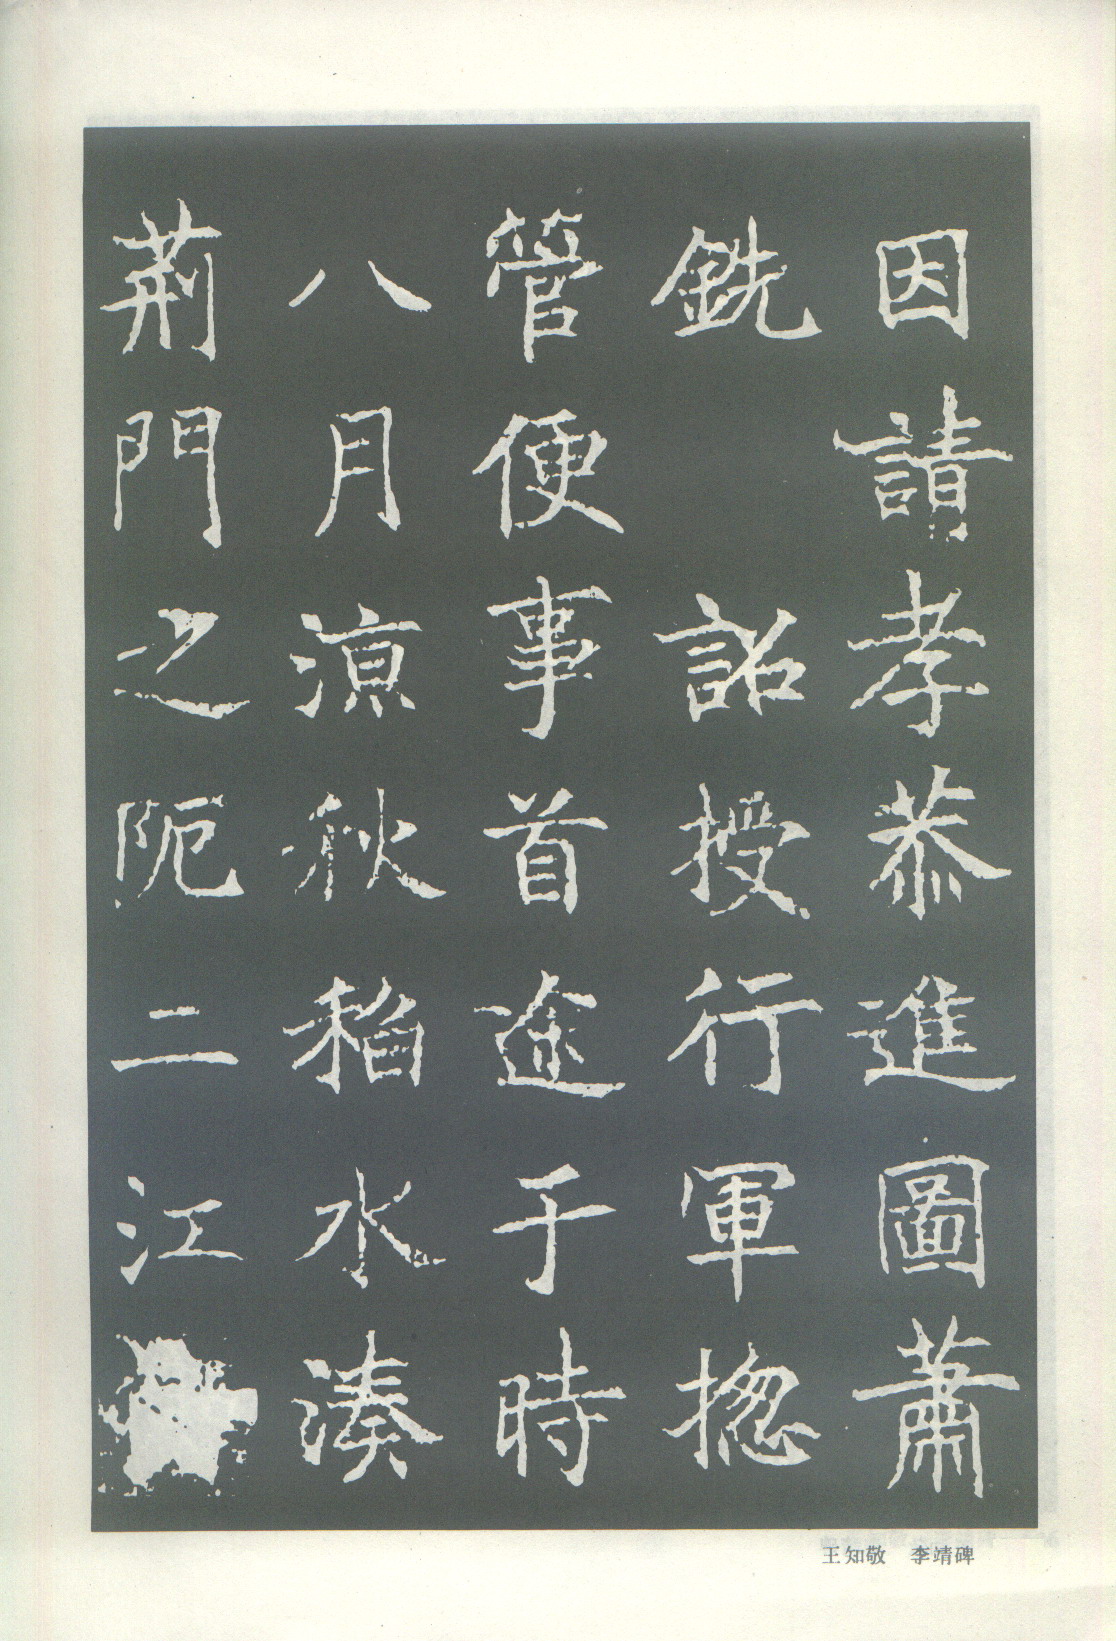 因請孝恭進圖蕭
銑詔授行軍揔
管便事首途于時
八月凉秋稻水湊
荊門之阨二江
王知敬 李靖碑